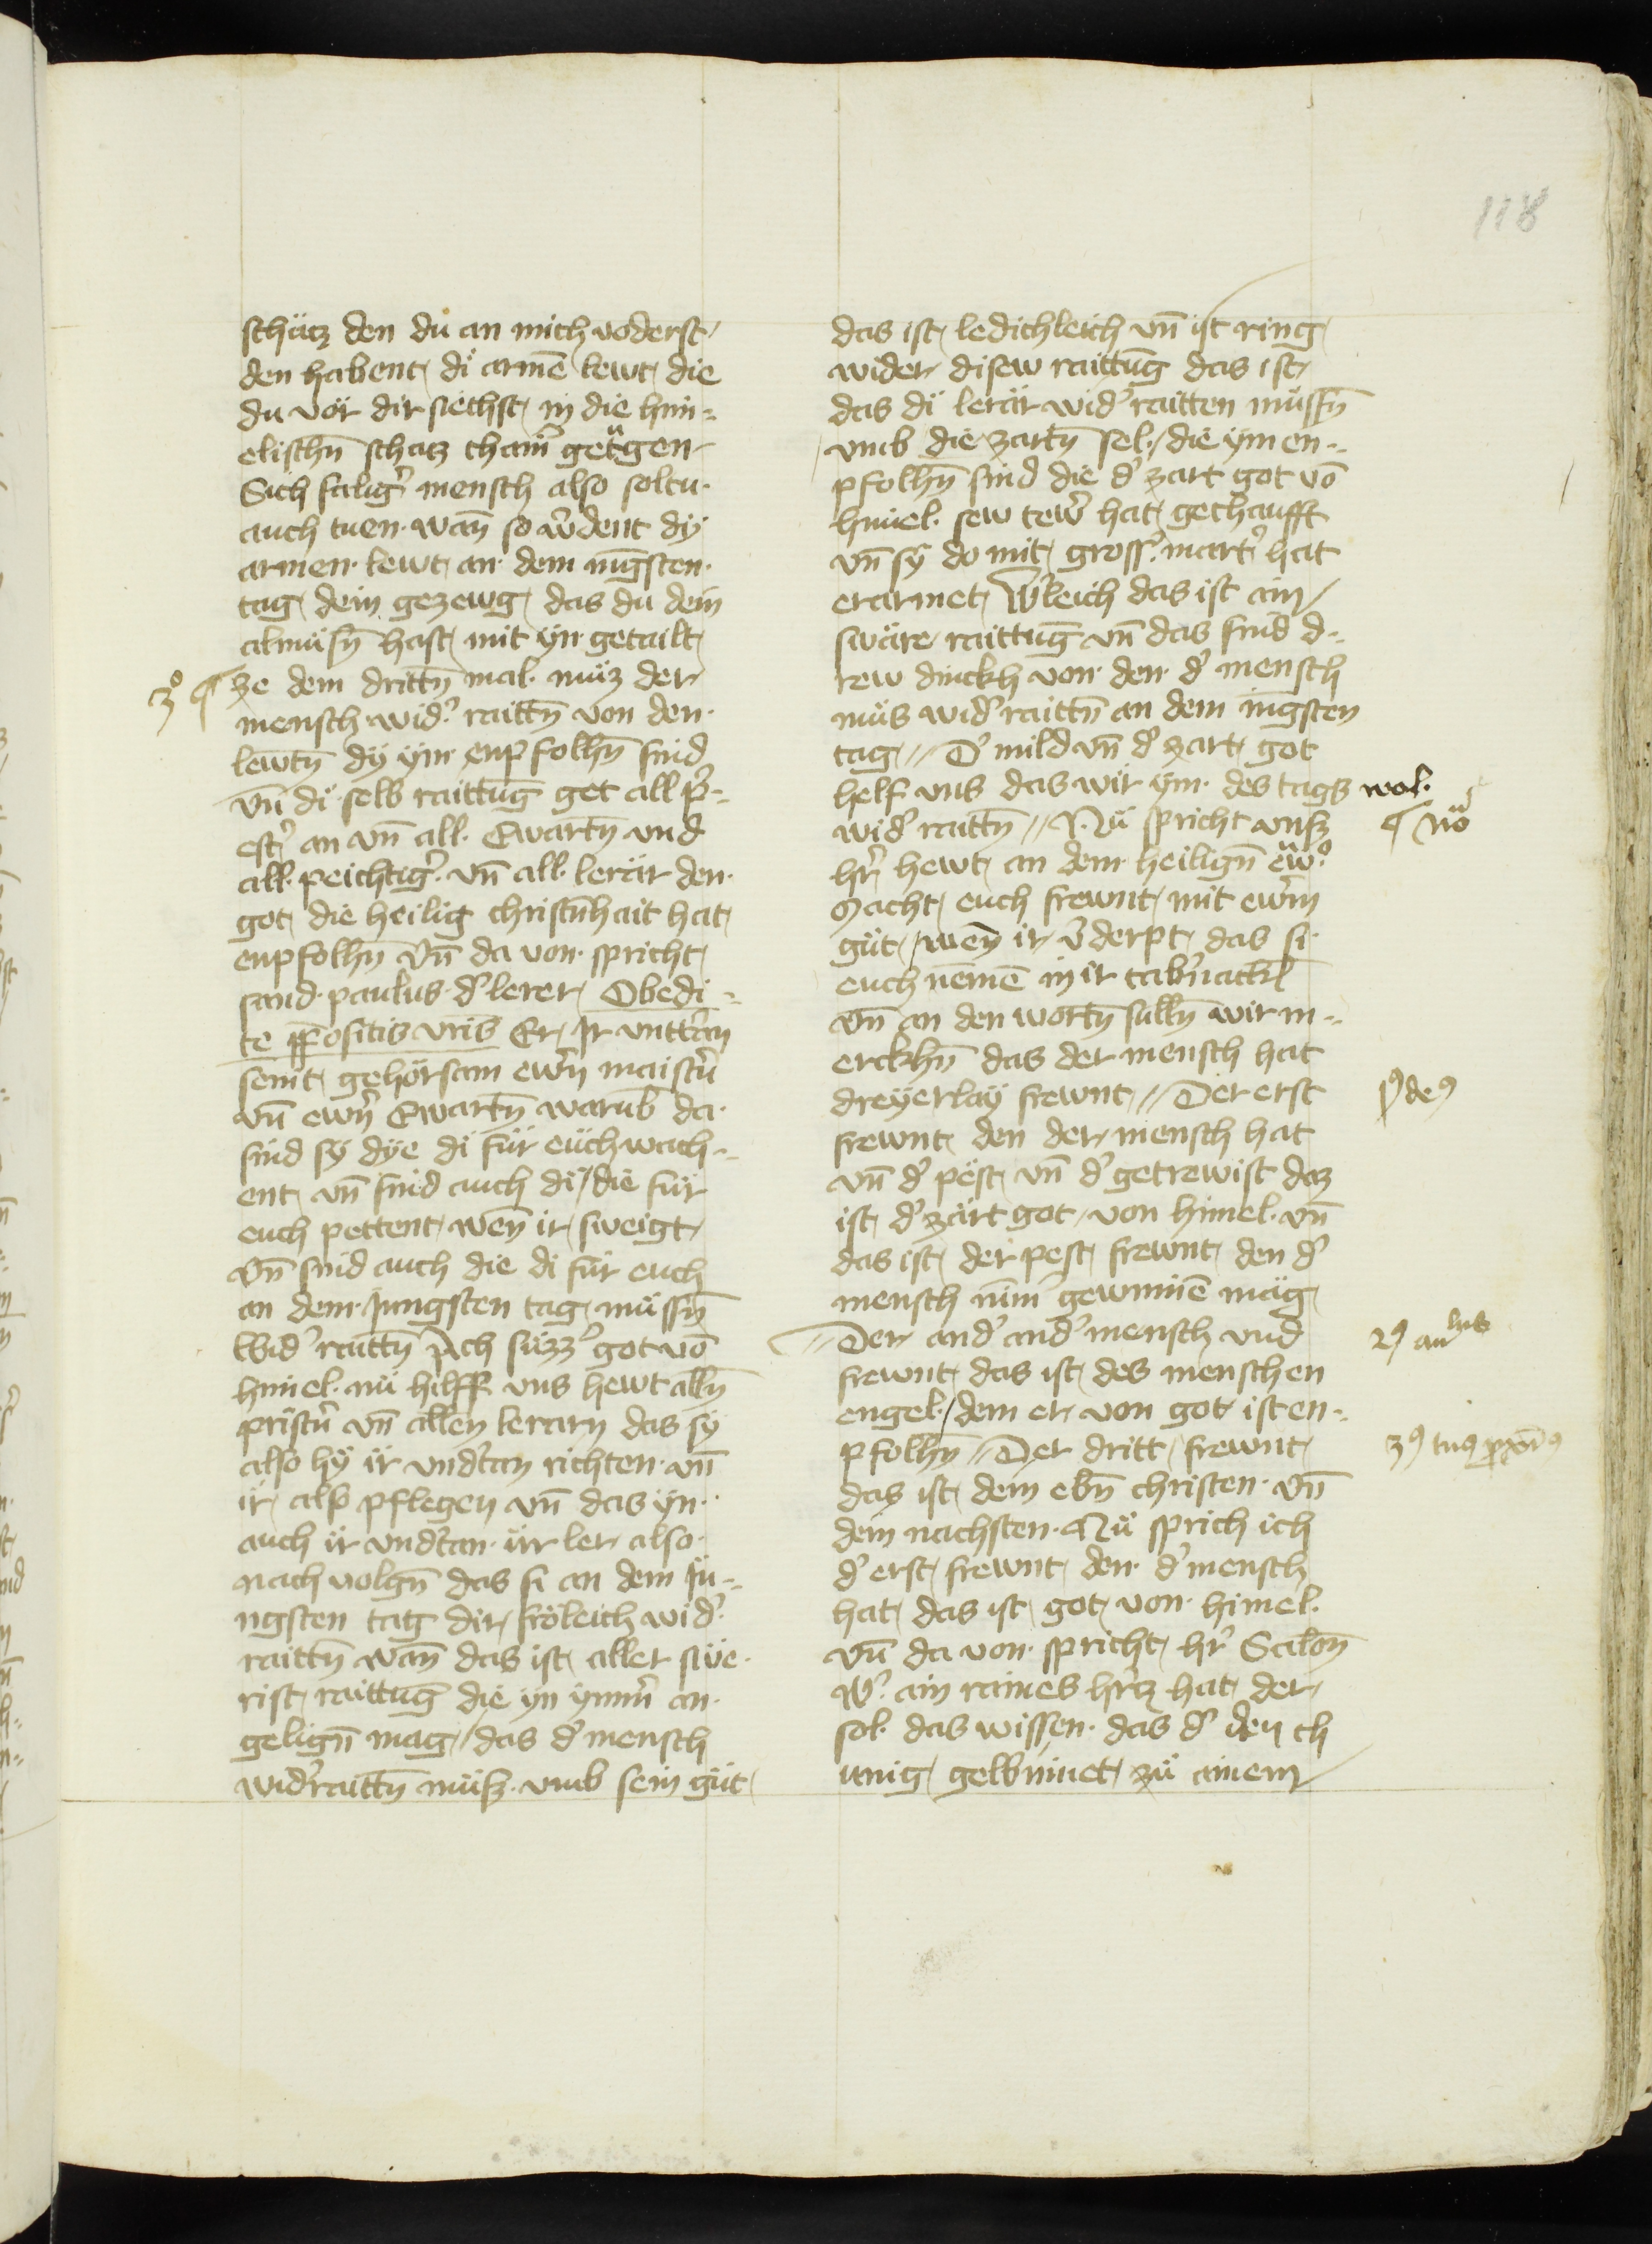 118
schäcz den du an mich voderst
den habent di armē lewt die
du vör dir siechst in die him-
elischn̄ schacz cham̄ getragen
Sich salig' mensch also soltu
auch tuen wan̄ so w'dent dÿ
armen lewt an dem iūgsten
tag dein gezewg das du dein
almüsn̄ hast mit ÿn getailt
3º ¶ ze dem drittn̄ mal müz der
mensch wid' raittn̄ von den
lewtn̄ dÿ ÿm enpfolhn̄ sind
vn̄ di selb raittūg get all p'-
est' an vn̄ all Ewartn̄ vnd
all peichtig' vn̄ all lerär den
got die heilig christn̄hait hat
enpfolhn̄ vn̄ da von spricht
sand paulus d' lerer Obedi-
te p̄positis vr̄is Er Ir vntt'an
seint gehörsam ewrn̄ maist'n
vn̄ ewrn̄ Ewartn̄ warūb da
sind sÿ dÿe di für euch wach-
ent vn̄ sind auch di die für
euch pettent wen̄ ir sweigt
vn̄ sind auch die di für euch
an dem Jungsten tag müssn̄
wid' raittn̄ Ach süzz' got vō
himel nü hilff vns hewt alln̄
prist'n vn̄ allen lerarn das sÿ
also hÿ ir vnd'tan richten vn̄
ir also pflegen vn̄ das ÿn
auch ir vnd'tan irr ler also
nach volgn̄ das si an dem Jü-
ngsten tag dir fröleich wid'
raittn̄ wan̄ das ist aller swe
rist raittūg die ÿn ÿmm' an
gelign̄ mag das d' mensch
wid'raittn̄ müsz vmb sein güt
das ist ledichleich vn̄ ist ring
wider disew raittūg das ist
das di lerär wid' raitten müssn̄
vmb die zartn̄ sel die ÿm en-
pfolhn̄ sind die d' zart got vō
himel sew tew' hat gechaufft
vn̄ sÿ do mit gross' mart' hat
erarnet W'leich das ist ain
swäre raittūg vn̄ das sind d-
rew dinckh von den d' mensch
müs wid' raittn̄ an dem iūgsten
tag D' mild vn̄ d' zart got
helf vns das wir ÿm des tags wol
wid' raittn̄ Nü spricht vnsz ¶ Nō
hr̄ hewt an dem heilign̄ ew°
Macht euch frewnt mit ewrm
güt wen̄ ir v'derpt das si
euch nemē in ir tab'nackl
vn̄ an den wortn̄ sulln̄ wir m-
erckhn̄ das der mensch hat
dreÿerlaÿ frewnt Der erst p9 de9
frewnt den der mensch hat
vn̄ d' pest vn̄ d' getrewist daz
ist d' zärt got von himel vn̄
das ist der pest frewnt den d'
mensch nīm' gewinnē mäg
Der and' and' mensch vnd 29 an lus
frewnt das ist des menschen
engel dem er von got ist en-
pfolhn̄ Der dritt frewnt 39 tu9 p̄xī9
das ist dem ebn̄ christen vn̄
dein nachsten Nü sprich ich
d' erst frewnt den d' mensch
hat das ist got von himel
vn̄ da von spricht hr̄ Salon̄
W' ain raines hrcz hat der
sol das wissen das d' den ch
unig gewinnet zü ainem